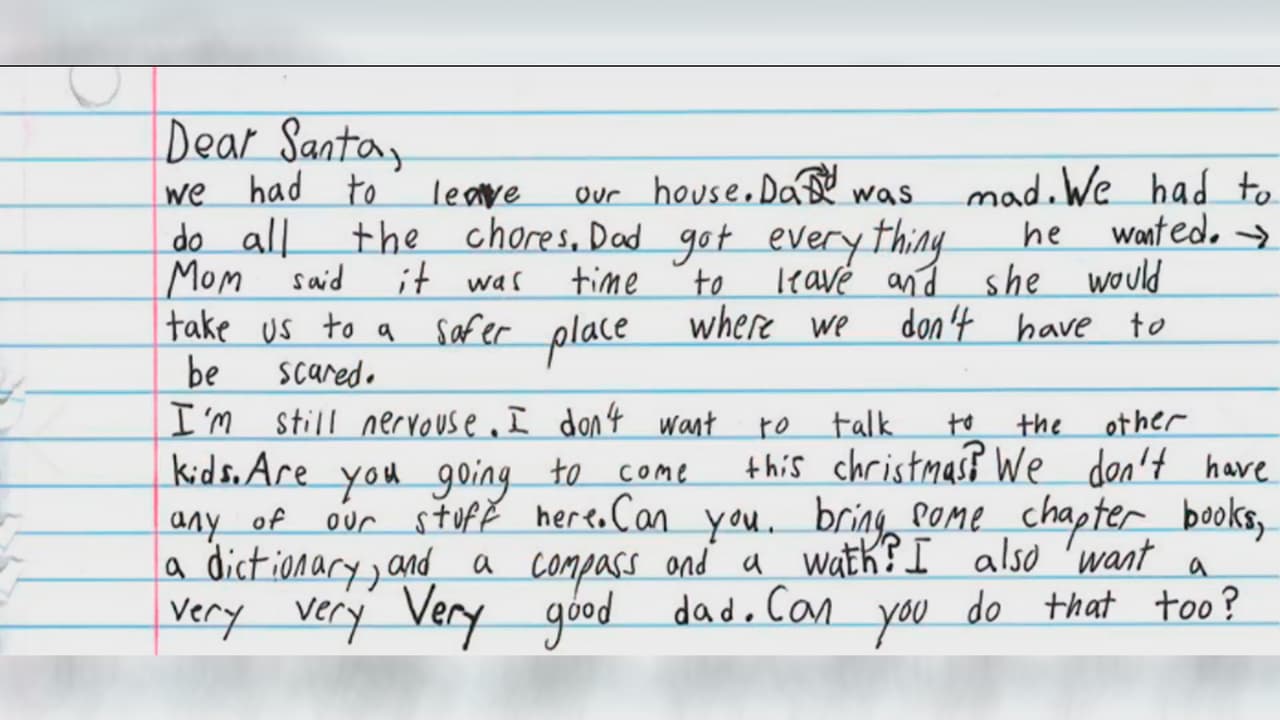 Dear Santa,
we had to leave our house. Dad was mad. We had to
do all the chores. Dad got everything he wanted. →
Mom said it was time to leave and she would
take us to a safer place where we don't have to
be scared.
I'm still nervouse. I don't want to talk to the other
kids. Are you going to come this christmas? We don't have
any of our stuff here. Can you. bring some chapter books,
a dictionary, and a compass and a wath? I also want a
very very very good dad. Can you do that too?